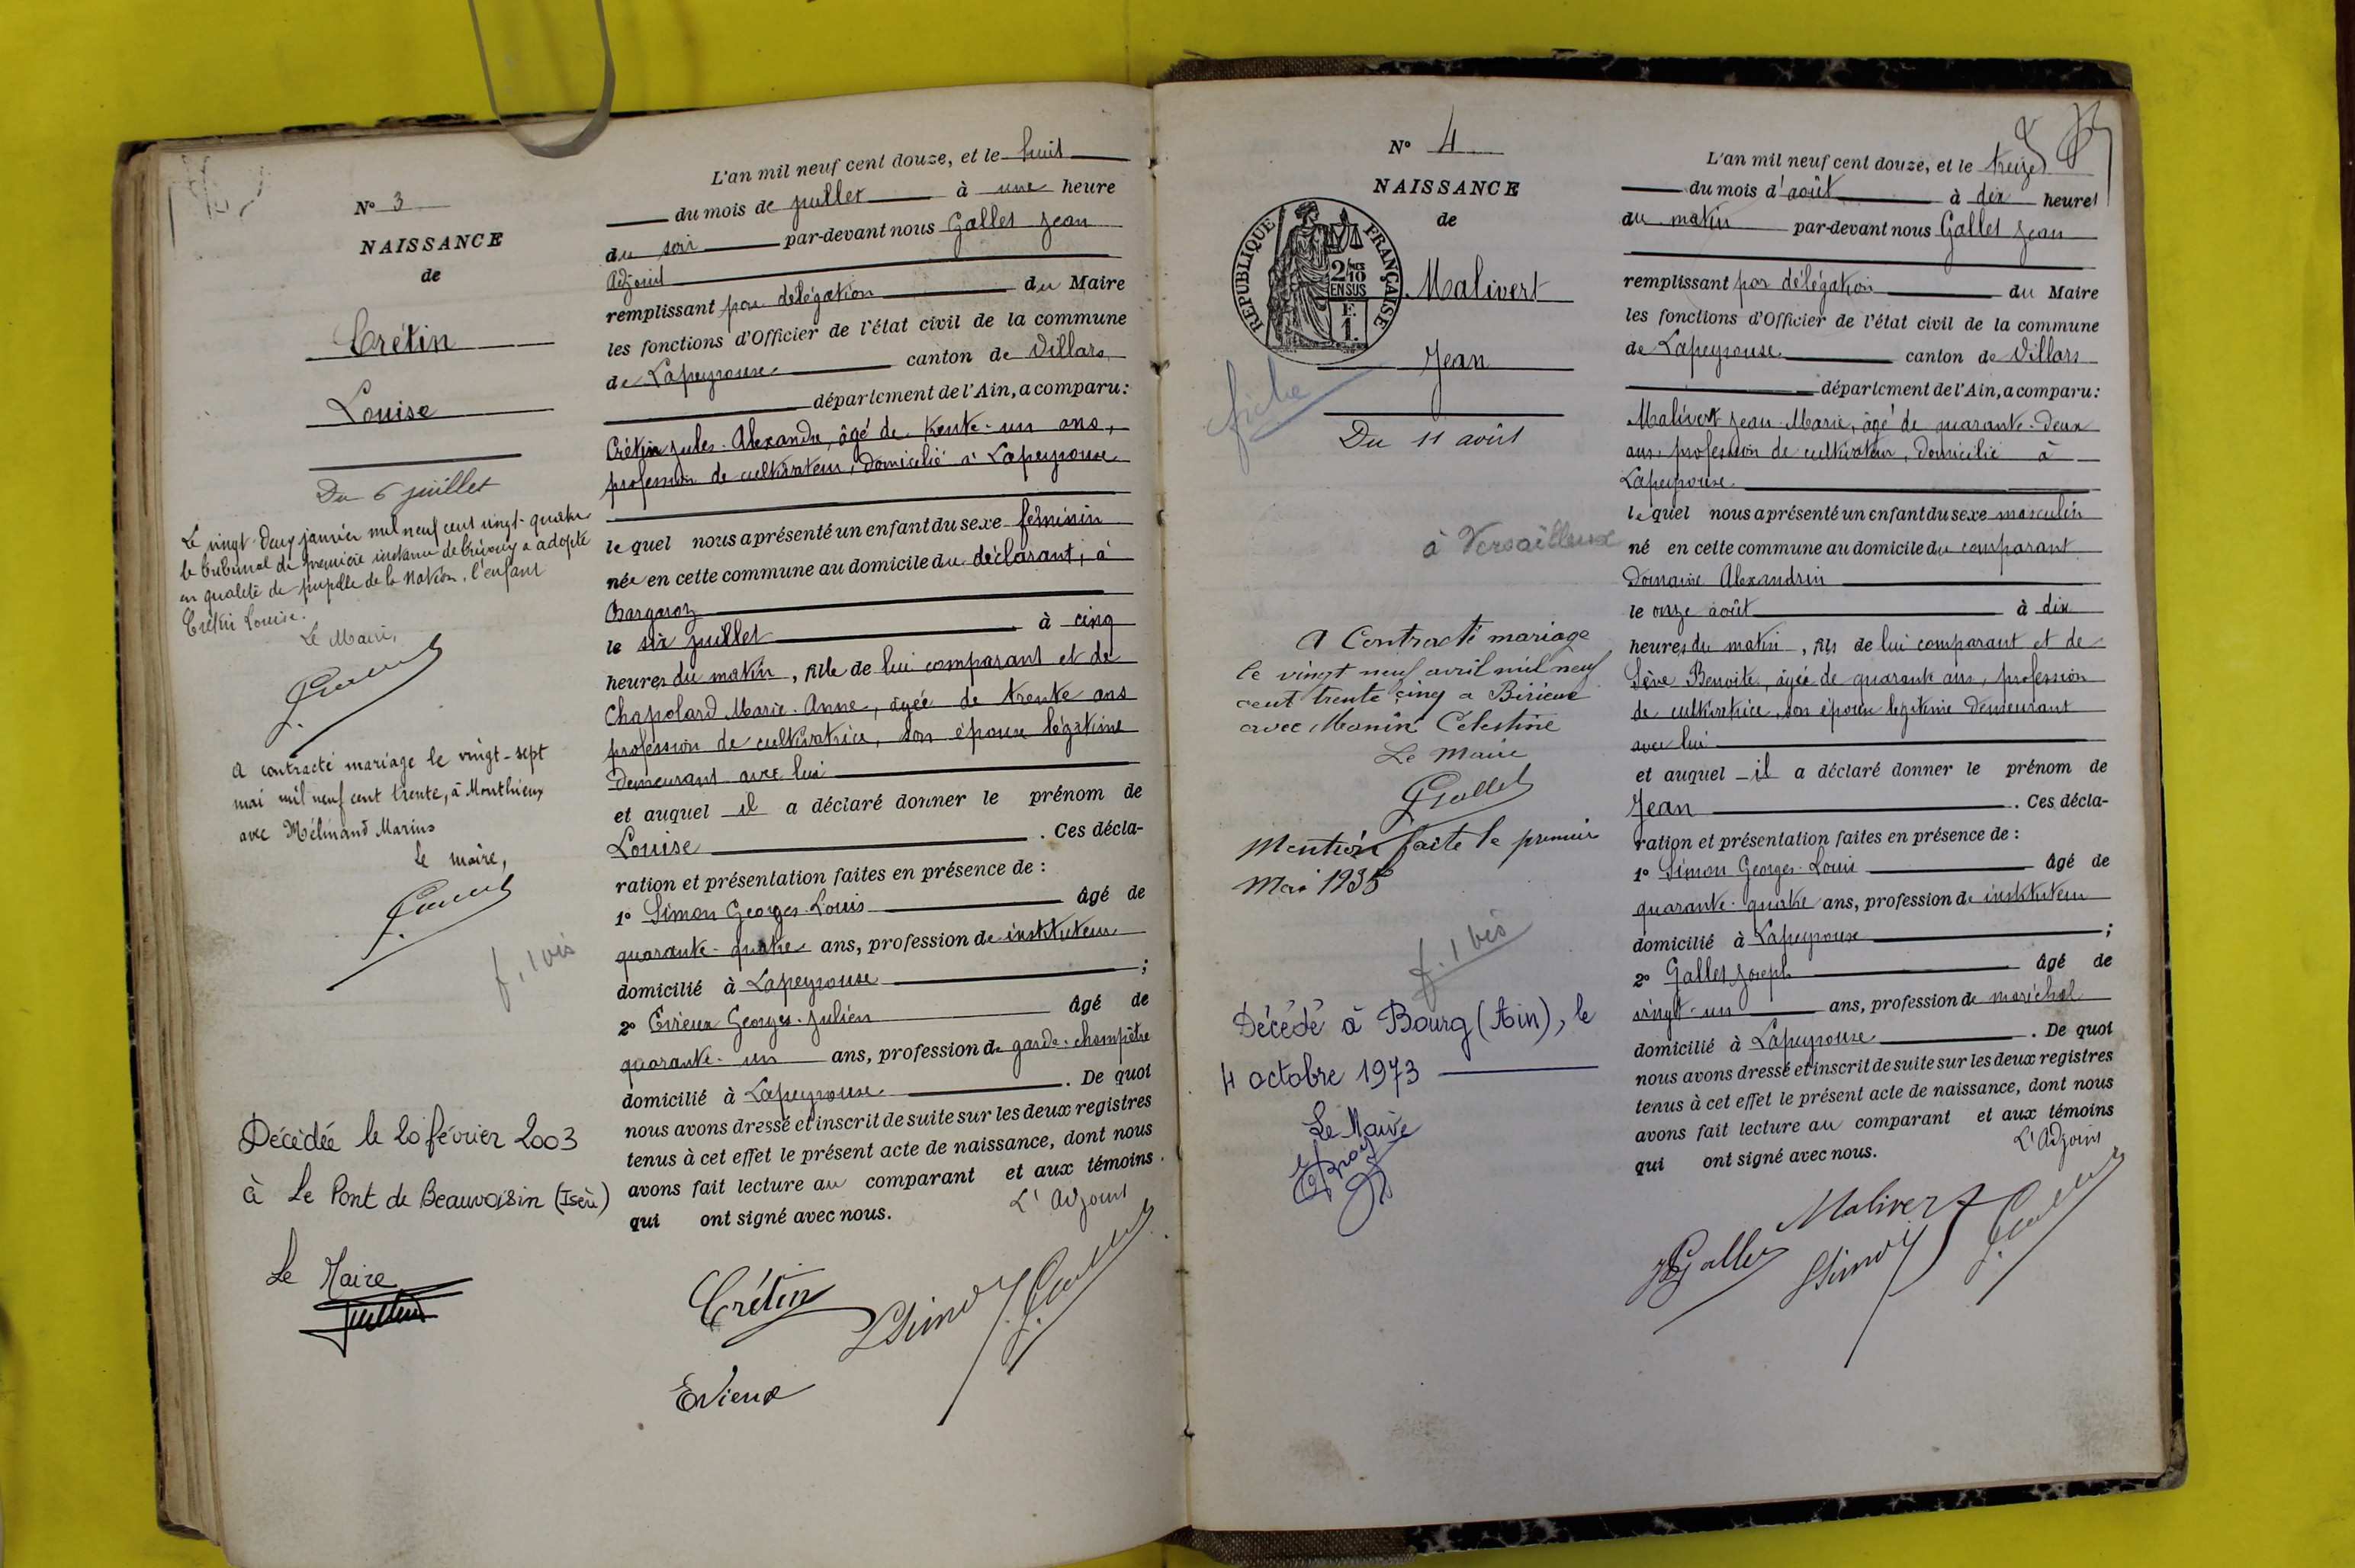 N° 3
NAISSANCE
de
Crétin
Louise
Du 6 juillet
Le vingt-deux janvier mil neuf cent vingt-quatre
le tribunal de première instance de Trévoux a adopté
en qualité de pupille de la Nation, l'enfant
Crétin Louise.
Le Maire,
A contracté mariage le vingt-sept
mai mil neuf cent trente, à Monthieux
avec Mélinand Marius
le maire,
f. 1 bis
Décédée le 20 février 2003
à Le Pont de Beauvoisin (Isère)
Le Maire
L'an mil neuf cent douze, et le huit
du mois de juillet à une heure
du soir par-devant nous Gallet Jean
Adjoint
remplissant par délégation du Maire
les fonctions d'Officier de l'état civil de la commune
de Lapeyrouse canton de Villars
département de l'Ain, a comparu:
Crétin Jules-Alexandre, âgé de trente-un ans,
profession de cultivateur, domicilié à Lapeyrouse
lequel nous a présenté un enfant du sexe féminin
née en cette commune au domicile du déclarant, à
le six juillet à cinq
heures du matin, fille de lui comparant et de
Chapolard Marie-Anne, âgée de trente ans
profession de cultivatrice, son épouse légitime
demeurant avec lui
et auquel il a déclaré donner le prénom de
Louise. Ces décla-
ration et présentation faites en présence de :
1° Simon Georges-Louis âgé de
quarante-quatre ans, profession de instituteur
domicilié à Lapeyrouse ;
2° Evieux Georges-Julien âgé de
quarante-un ans, profession de garde-champêtre
domicilié à Lapeyrouse. De quoi
nous avons dressé et inscrit de suite sur les deux registres
tenus à cet effet le présent acte de naissance, dont nous
avons fait lecture au comparant et aux témoins
qui ont signé avec nous.
L'Adjoint
Crétin
LSimon
J. Gallet
Evieux
N° 4
NAISSANCE
de
RÉPUBLIQUE FRANÇAISE
2/10
EN SUS
F.
1.
Malivert
Jean
fiche
Du 11 août
à Versailleux
A Contracté mariage
le vingt neuf avril mil neuf
cent trente cinq a Birieux
avec Monin Célestine
Le Maire
J Gallet
Mention faite le premier
Mai 1935
f. 1 bis
Décédé à Bourg (Ain), le
4 octobre 1973
Le Maire
L'an mil neuf cent douze, et le treize
du mois d'août à dix heures
du matin par-devant nous Gallet Jean
remplissant par délégation du Maire
les fonctions d'Officier de l'état civil de la commune
de Lapeyrouse canton de Villars
département de l'Ain, a comparu:
Malivert Jean-Marie, âgé de quarante-deux
ans, profession de cultivateur, domicilié à
Lapeyrouse
lequel nous a présenté un enfant du sexe masculin
né en cette commune au domicile du comparant
Domaine Alexandrin
le onze août à dix
heures du matin, fils de lui comparant et de
Sève Benoite, âgée de quarante ans, profession
de cultivatrice, son épouse légitime demeurant
avec lui
et auquel il a déclaré donner le prénom de
Jean. Ces décla-
ration et présentation faites en présence de :
1° Simon Georges-Louis âgé de
quarante-quatre ans, profession de instituteur
domicilié à Lapeyrouse ;
2° Gallet Joseph âgé de
vingt-un ans, profession de maréchal
domicilié à Lapeyrouse. De quoi
nous avons dressé et inscrit de suite sur les deux registres
tenus à cet effet le présent acte de naissance, dont nous
avons fait lecture au comparant et aux témoins
qui ont signé avec nous.
L'Adjoint
Malivert
J Gallet
LSimon
J. Gallet